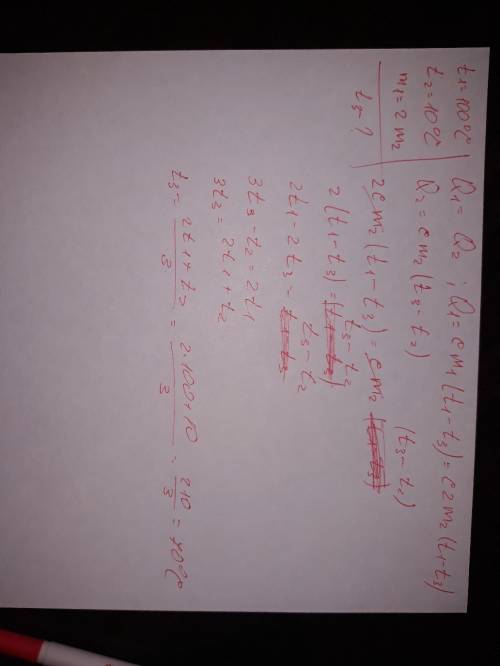 t1=100°C
t2=10°C
m1=2m2
t3-?
Q1 = Q2 ; Q1=cm1(t1-t3)=c2m2(t1-t3)
Q2=cm2(t3-t2)
2cm2(t1-t3)=cm2 (t3-t2)
2(t1-t3)= t3-t2
2t1-2t3= t3-t2
3t3-t2=2t1
3t3= 2t1+t2
t3= 2t1+t2/3 = 2·100+10/3 = 210/3 = 70°C